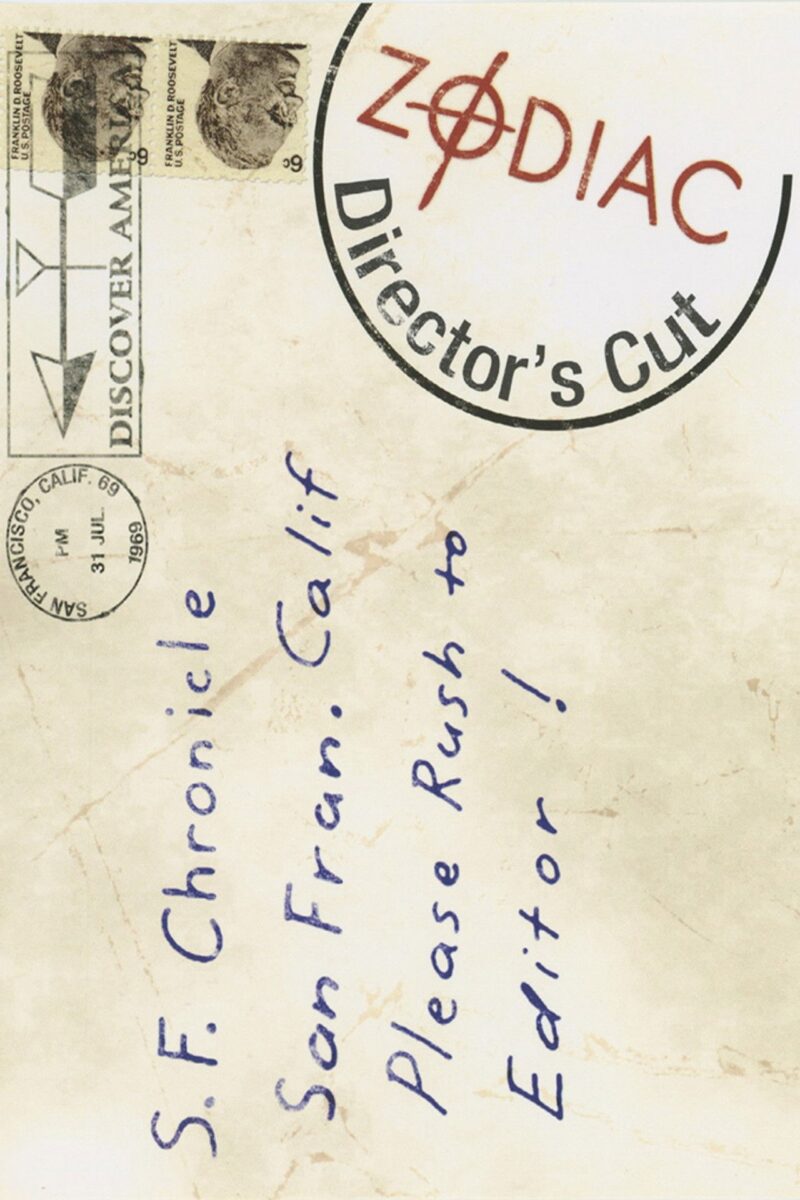 FRANKLIN D. ROOSEVELT
U.S. POSTAGE
6¢
FRANKLIN D. ROOSEVELT
U.S. POSTAGE
6¢
DISCOVER AMERICA
SAN FRANCISCO, CALIF. 69
PM
31 JUL
1969
ZODIAC
Director's Cut
S.F. Chronicle
San Fran. Calif
Please Rush to
Editor !